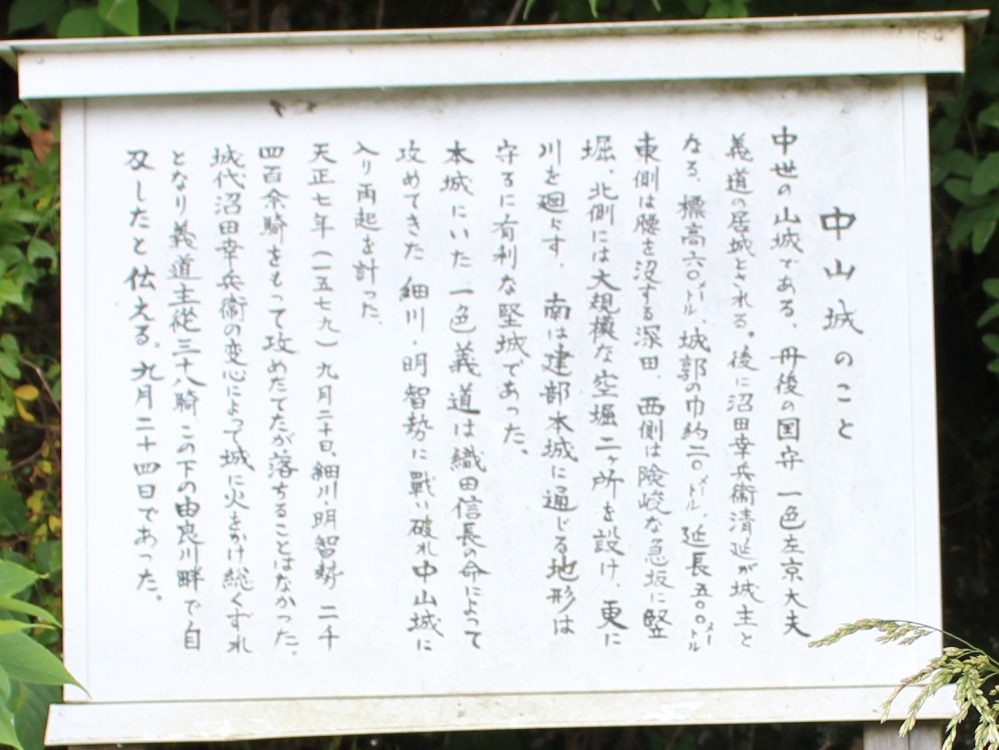 中山城のこと
中世の山城である、丹後の国守 一色左京大夫
義道の居城とされる。後に沼田幸兵衛清延が城主と
なる、標高六〇メートル、城郭の巾約二〇メートル、延長五〇〇メートル
東側は腰を没する深田、西側は険峻な急坂に竪
堀、北側には大規模な空堀二ヶ所を設け、更に
川を廻らす、南は建部本城に通じる地形は
守るに有利な堅城であった。
本城にいた一色義道は織田信長の命によって
攻めてきた 細川・明智勢に戦い破れ中山城に
入り再起を計った、
天正七年(一五七九)九月二十日、細川明智勢 二千
四百余騎をもって攻めたてたが落ちることはなかった。
城代沼田幸兵衛の変心によって城に火をかけ総くずれ
となり義道主従三十八騎、この下の由良川畔で自
刃したと伝える。九月二十四日であった。